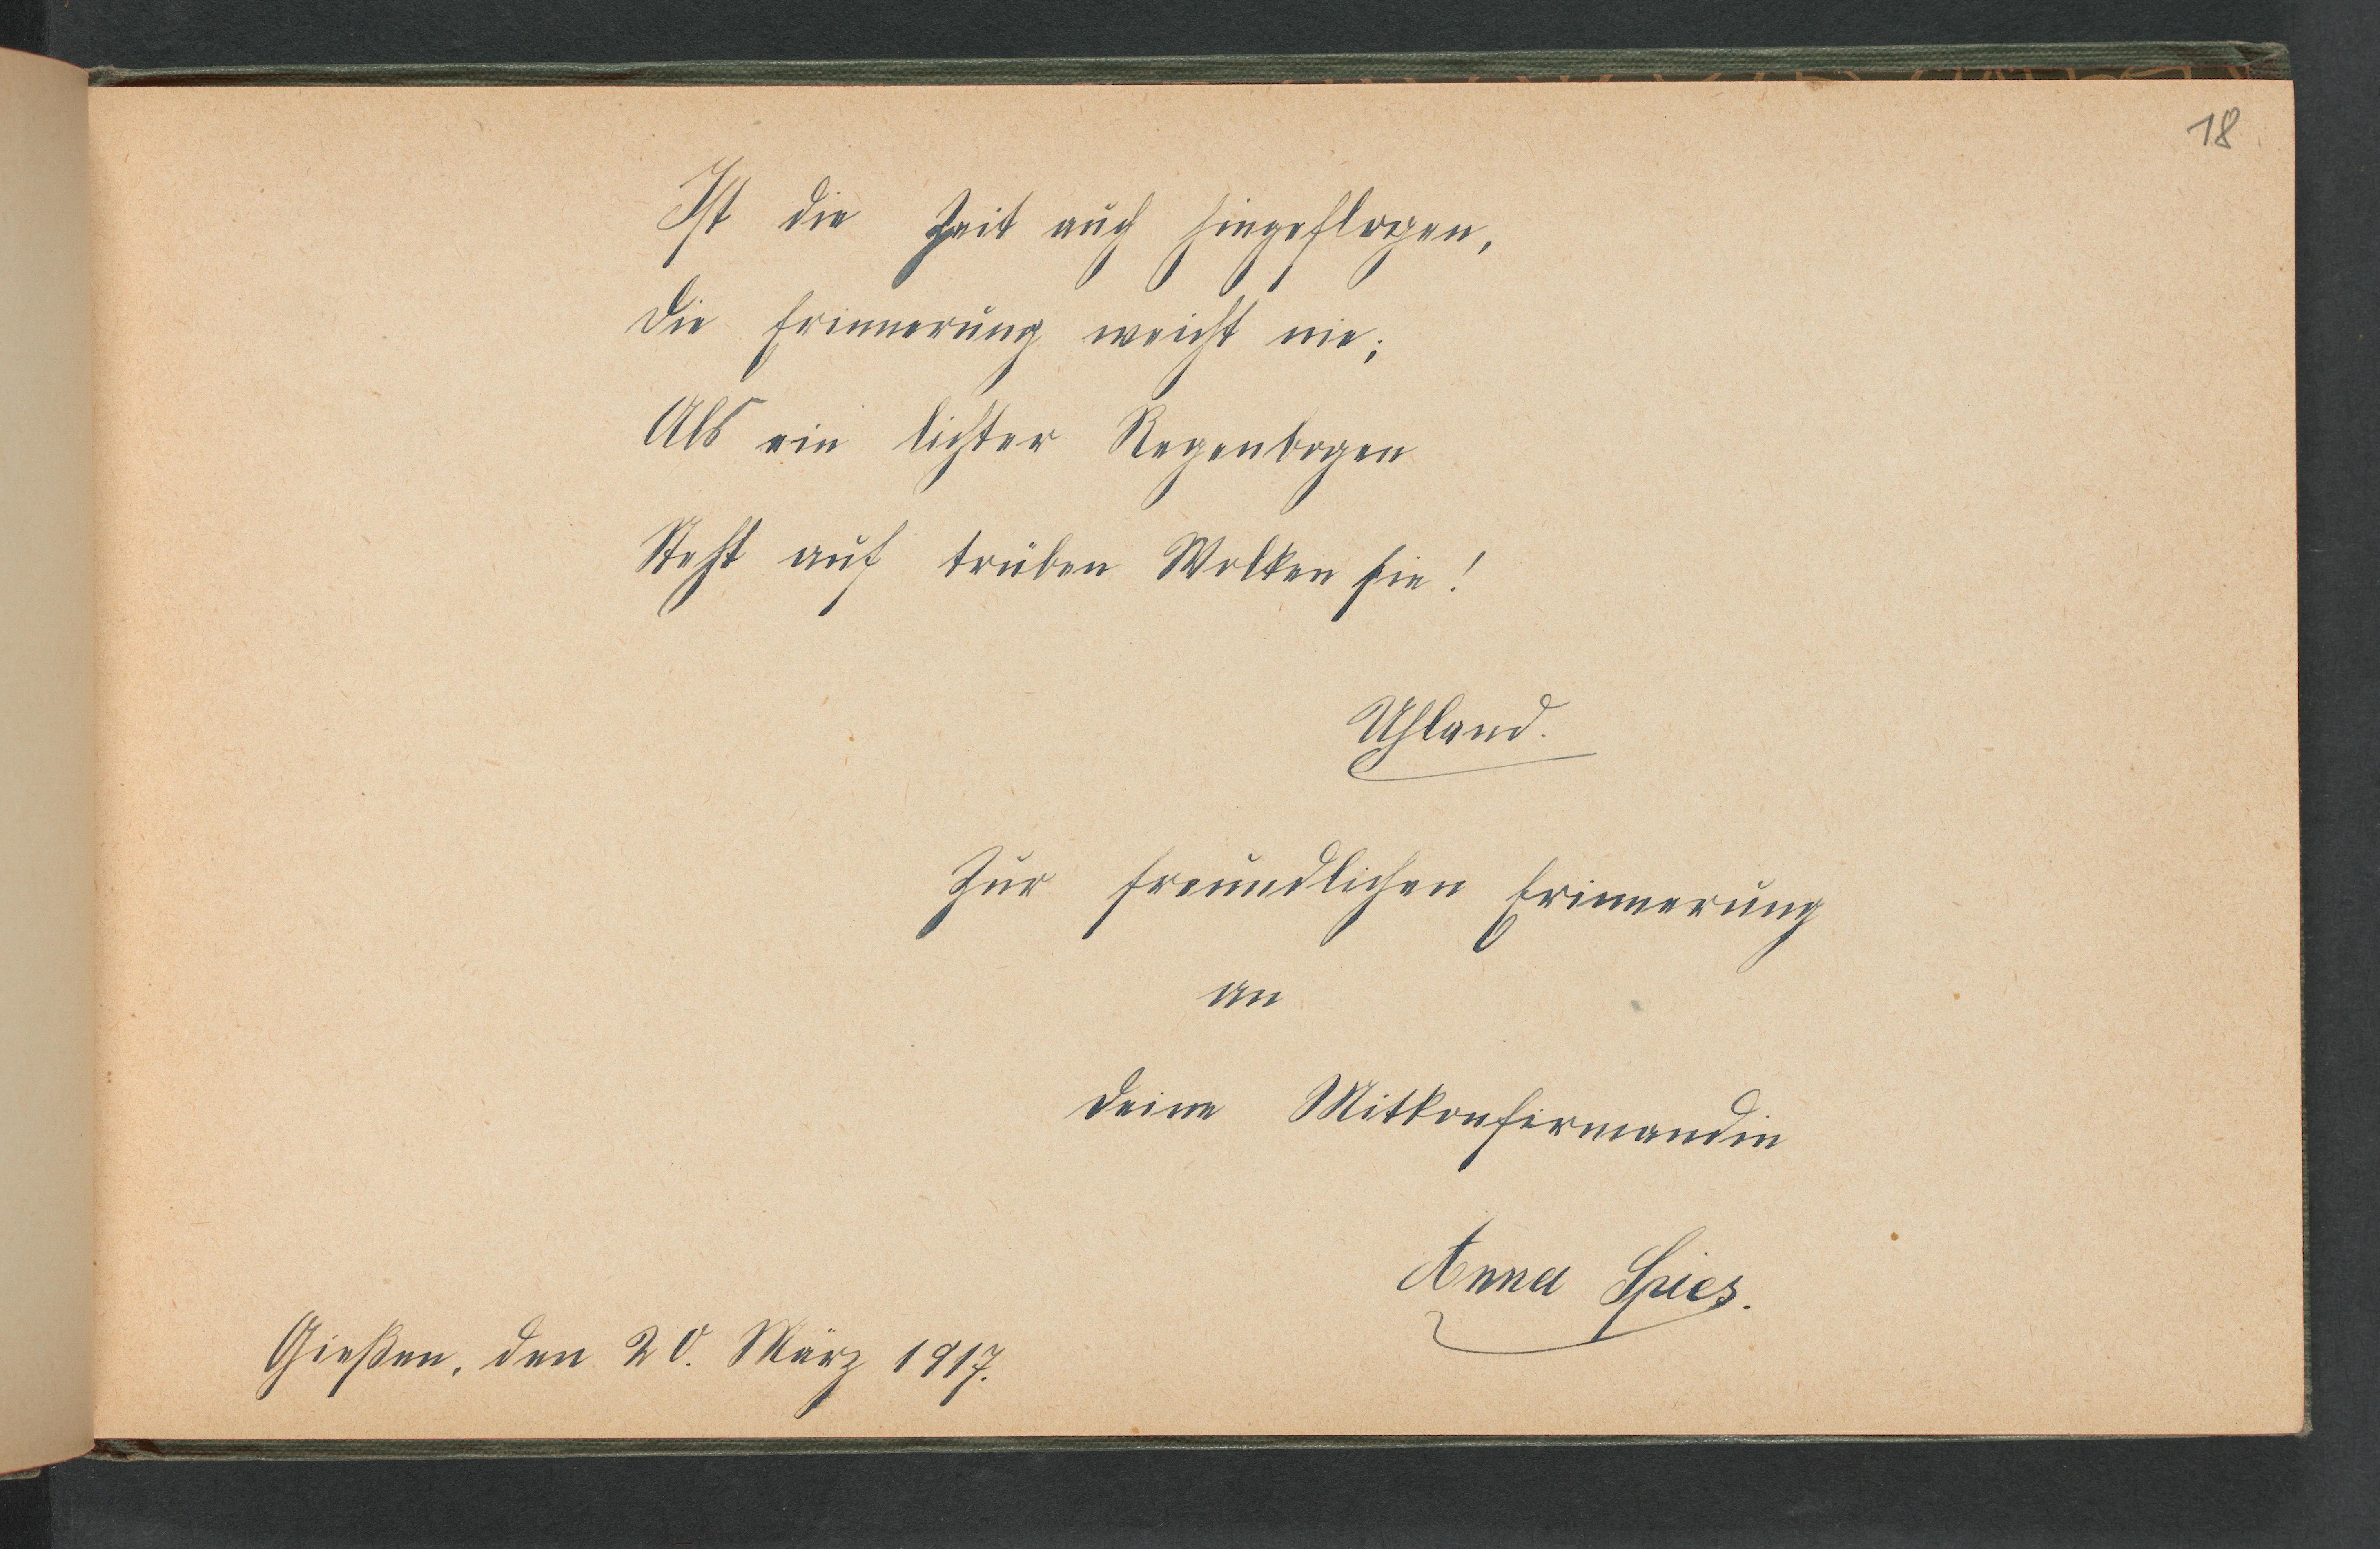 18
Ist die Zeit auch hingeflogen,
die Erinnerung weicht nie;
Als ein lichter Regenbogen
Steht auf trüben Wolken sie!
Uhland.
Zur freundlichen Erinnerung
an
Deine Mitkonfirmandin
Anna Spies.
Gießen, den 20. März 1917.